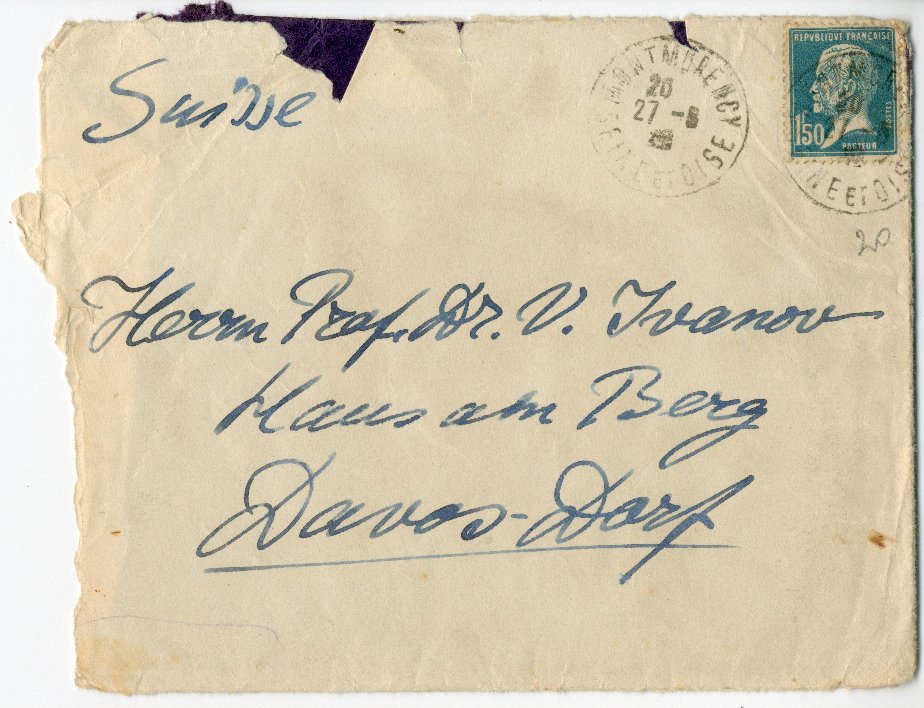 Suisse
MONTMORENCY
20
27 -8
SEINE ET OISE
REPVBLIQUE FRANÇAISE
POSTES
1F50
PASTEUR
20
NE ET OIS
20
Herrn Prof. Dr. V. Ivanov
Haus am Berg
Davos-Dorf